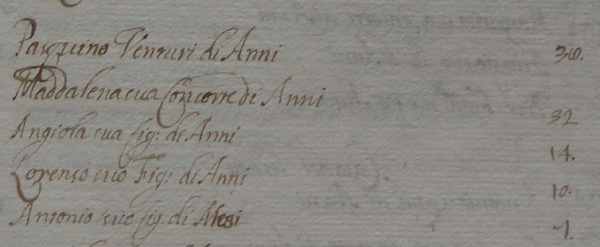 Pasquino Venturi di Anni 36.
Maddalena sua Consorte di Anni 32
Angiola sua fig: di Anni 14.
Lorenso suo Fig: di Anni 10.
Antonio suo fig. di Mesi 7.